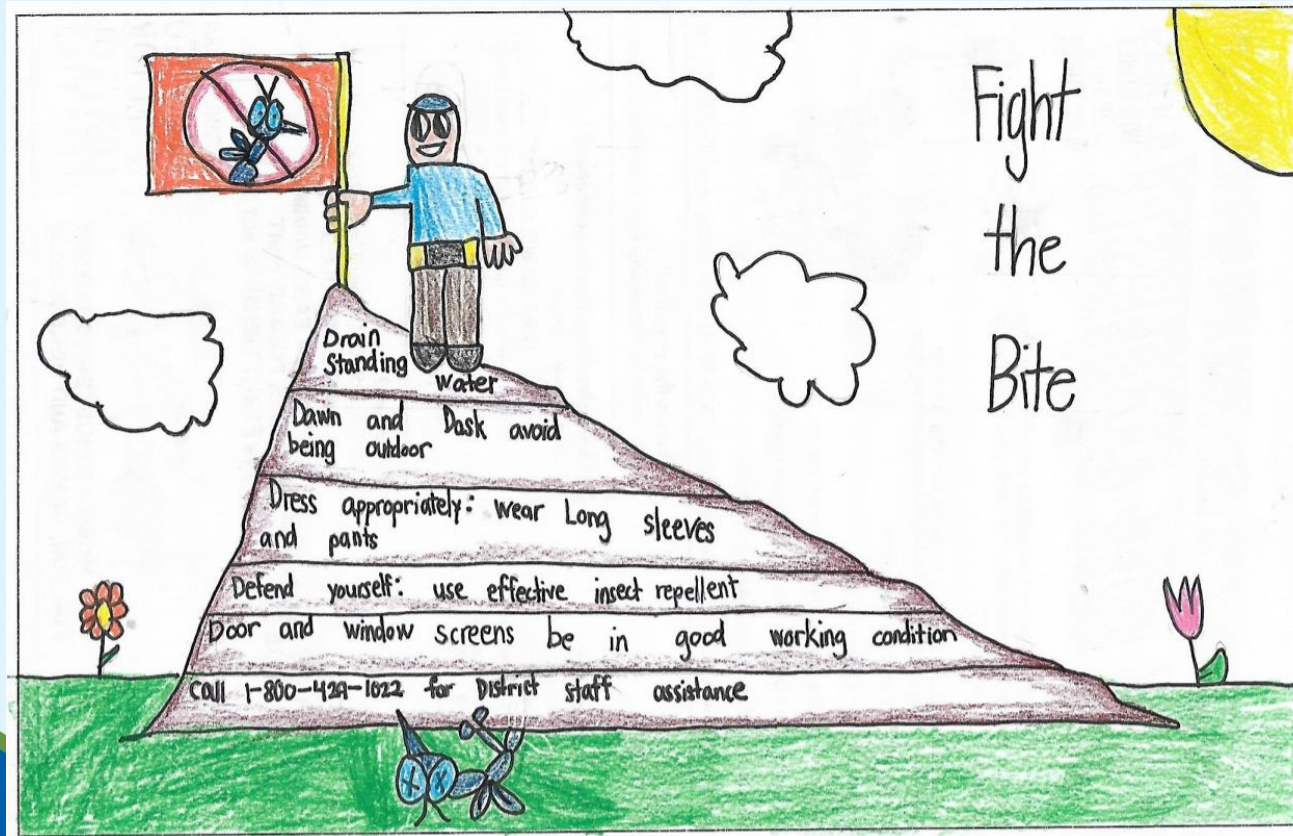 Fight
the
Bite
Drain
Standing
water
Dawn and Dask avoid
being outdoor
Dress appropriately: wear Long sleeves
and pants
Defend yourself: use effective insect repellent
Door and window screens be in good working condition
Call 1-800-429-1022 for District staff assistance